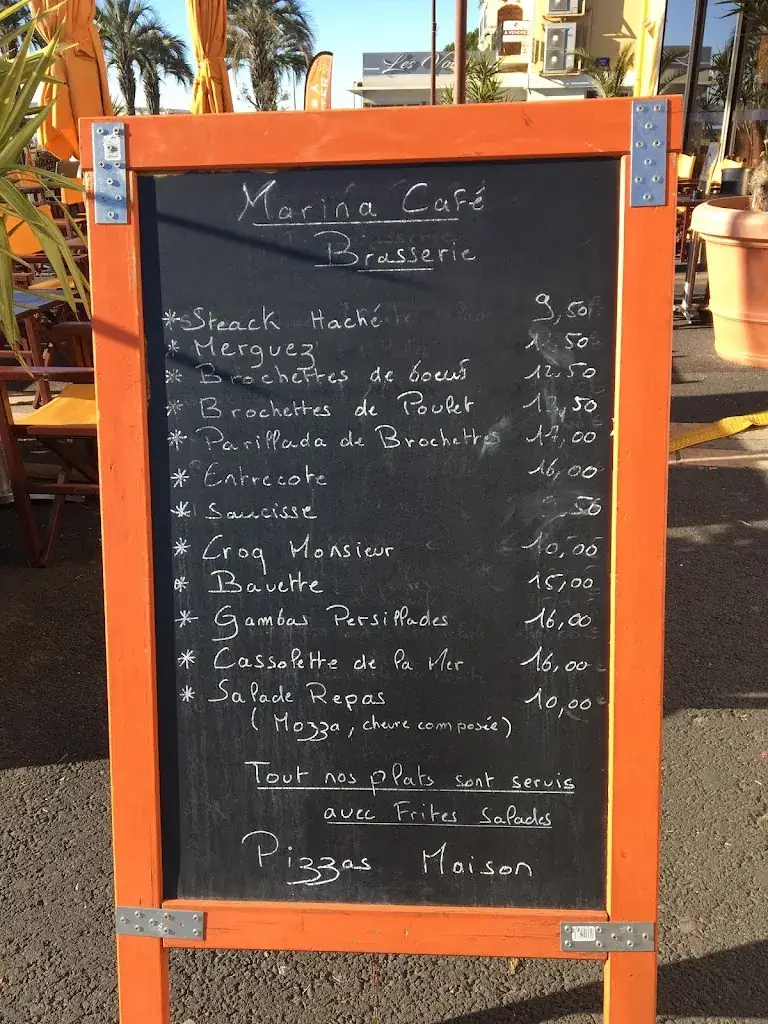 A VENDRE
Les Vo
Marina Café
Brasserie
* Steack Haché 9,50
* Merguez 50
* Brochettes de boeuf 12.50
* Brochettes de Poulet 12,50
* Parillada de Brochettes 17,00
* Entrecote 16,00
* Saucisse
* Croq Monsieur 10,00
* Bavette 15,00
* Gambas Persillades 16,00
* Cassolette de la Mer 16,00
* Salade Repas 10,00
(Mozza, chevre composée)
Tout nos plats sont servis
avec Frites Salades
Pizzas Maison